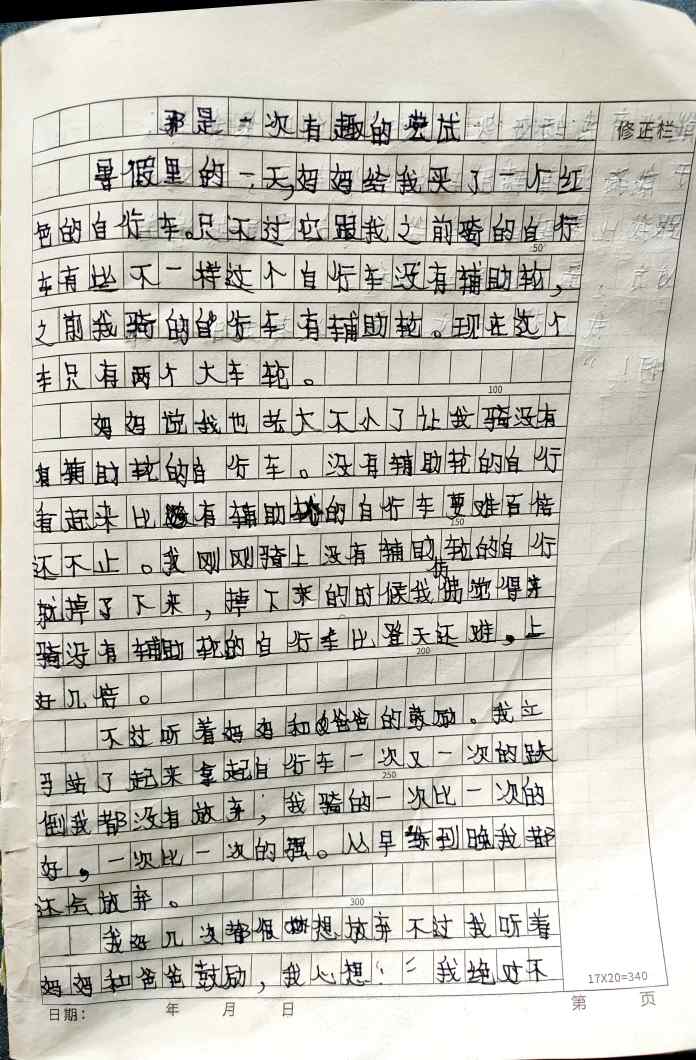 那是一次有趣的尝试
修正栏
暑假里的一天,妈妈给我买了一个红
色的自行车。只不过它跟我之前骑的自行
50
车有些不一样这个自行车没有辅助轮,
之前我骑的自行车有辅助轮。现在这个
车只有两个大车轮。
100
妈妈说我也老大不小了让我骑没有
有辅助轮的自行车。没有辅助轮的自行
看起来比有辅助轮的自行车要难百倍
150
还不止。我刚刚骑上没有辅助轮的自行
就掉了下来,掉下来的时候我觉得来
骑没有辅助轮的自行车比登天还难,上
200
好几倍。
不过听着妈妈和爸爸的鼓励。我立
马站了起来拿起自行车一次又一次的跌
250
倒我都没有放弃,我骑的一次比一次的
好,一次比一次的强。从早练到晚我都
还会放弃。
300
我好几次都很想放弃不过我听着
妈妈和爸爸鼓励,我心想:“我绝对不
17X20=340
日期: 年 月 日 第 页